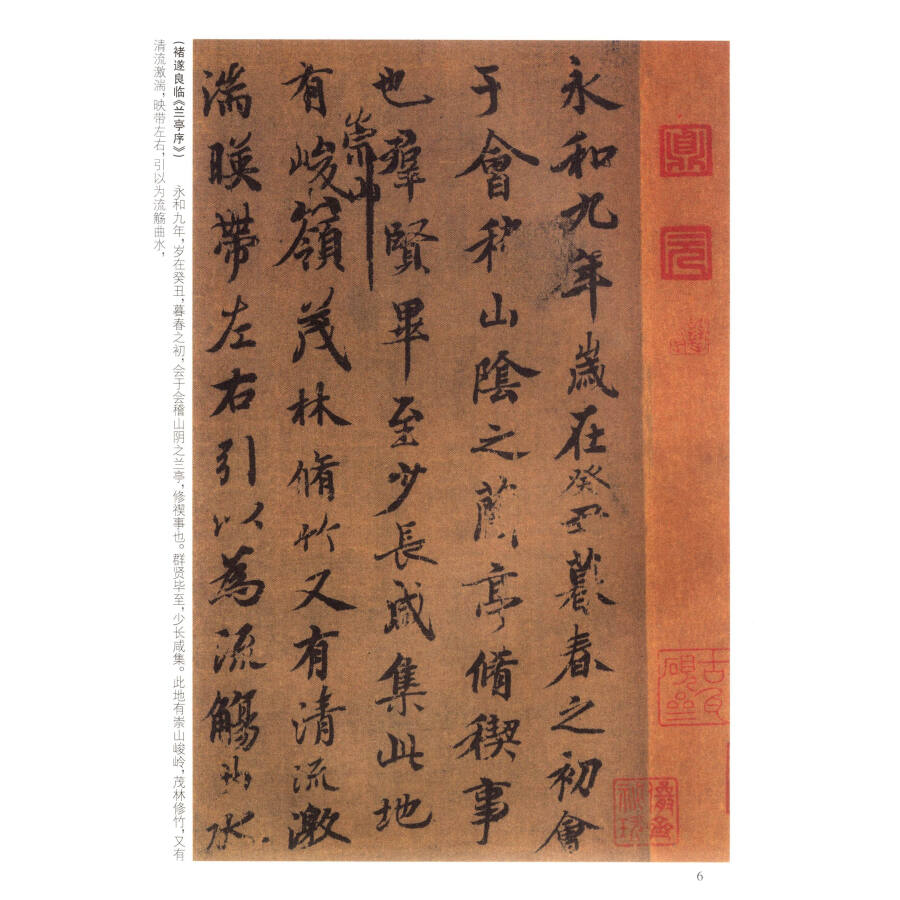 永和九年歲在癸丑暮春之初會
于會稽山陰之蘭亭脩稧事
也群賢畢至少長咸集此地
有崇山峻領茂林脩竹又有清流激
湍暎帶左右引以為流觴曲水
(褚遂良临《兰亭序》) 永和九年,岁在癸丑,暮春之初,会于会稽山阴之兰亭,修禊事也。群贤毕至,少长咸集。此地有崇山峻岭,茂林修竹,又有
清流激湍,映带左右,引以为流觞曲水,
6